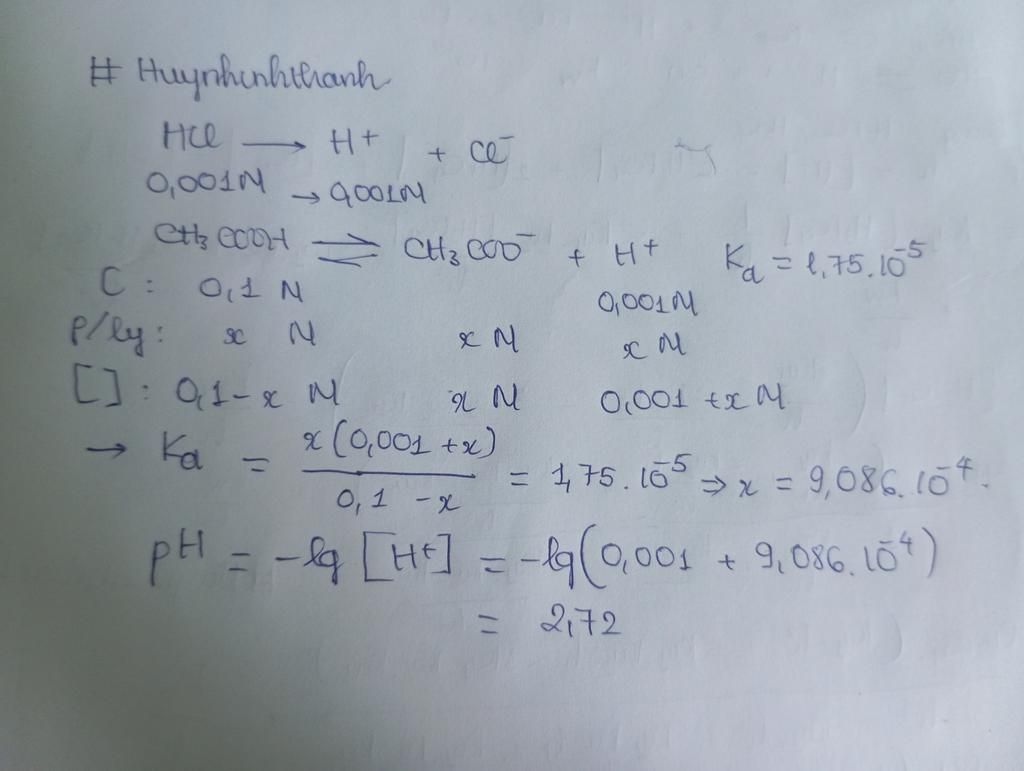 # Huynhnhthanh
HCl → H+ + Cl⁻
0,001M → 0,001M
CH3COOH ⇌ CH3COO⁻ + H+ Ka = 1,75.10⁻⁵
C : 0,1 M 0,001M
p/ly : x M x M x M
[ ] : 0,1 - x M x M 0,001 + x M
→ Ka = x(0,001 + x) / (0,1 - x) = 1,75.10⁻⁵ ⇒ x = 9,086.10⁻⁴.
pH = -lg [H+] = -lg(0,001 + 9,086.10⁻⁴)
= 2,72